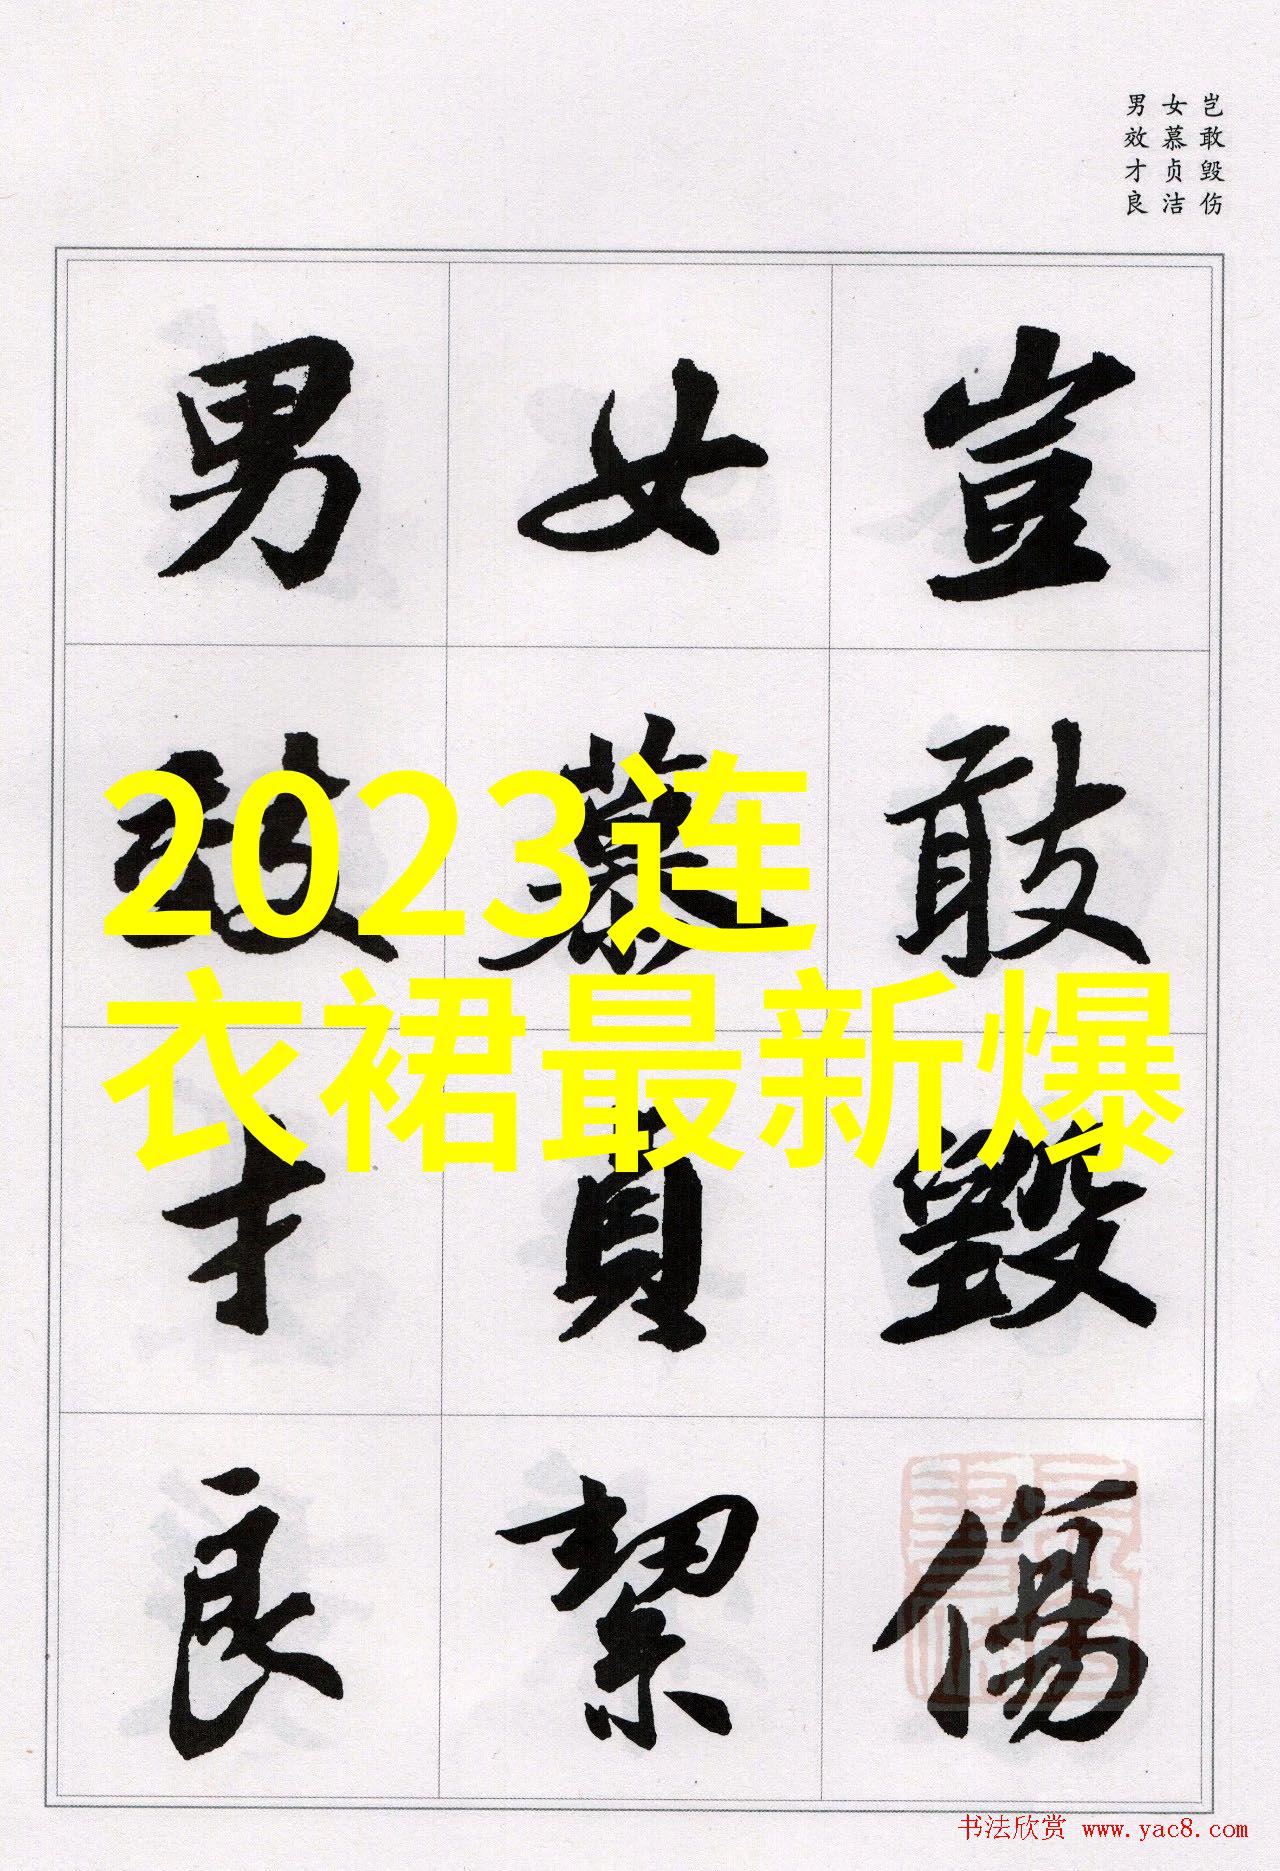 岂敢毁伤
女慕贞洁
男效才良
豈敢毀傷
女慕貞絜
男效才良
2023连
衣裙最新爆
书法欣赏 www.yac8.com